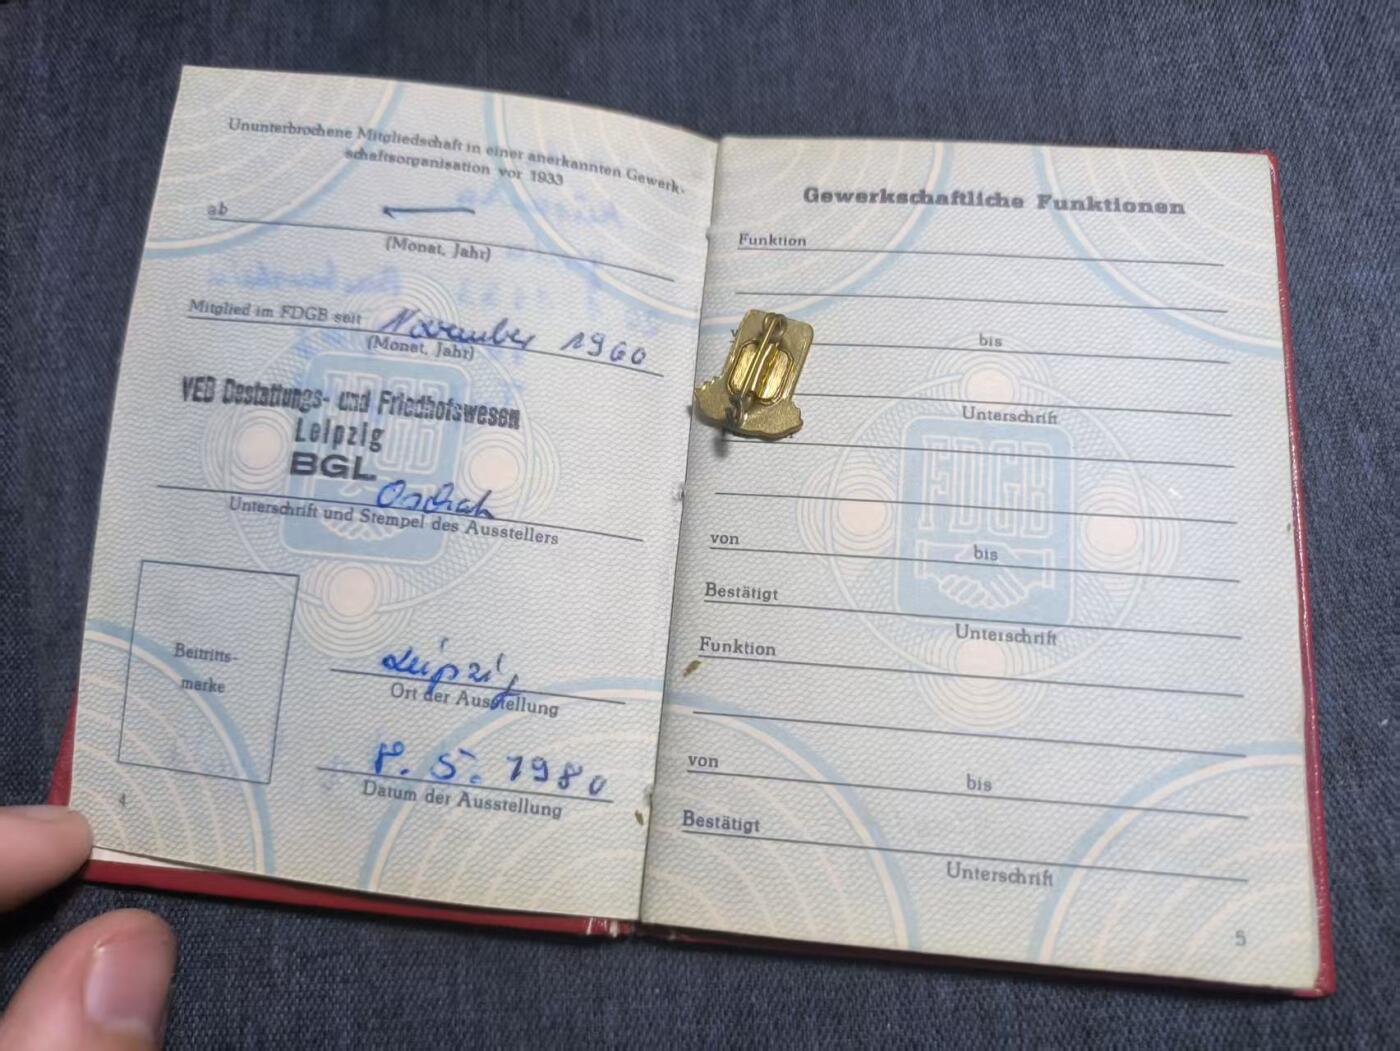 Ununterbrochene Mitgliedschaft in einer anerkannten Gewerk-
schaftsorganisation vor 1933
ab
(Monat, Jahr)
Mitglied im FDGB seit November 1960
(Monat, Jahr)
VEB Bestattungs- und Friedhofswesen
Leipzig
BGL
Unterschrift und Stempel des Ausstellers
Beitritts-
marke
Leipzig
Ort der Ausstellung
8. 5. 1980
Datum der Ausstellung
4
FDGB
Gewerkschaftliche Funktionen
Funktion
bis
Unterschrift
von
bis
Bestätigt
Unterschrift
Funktion
von
bis
Bestätigt
Unterschrift
FDGB
5